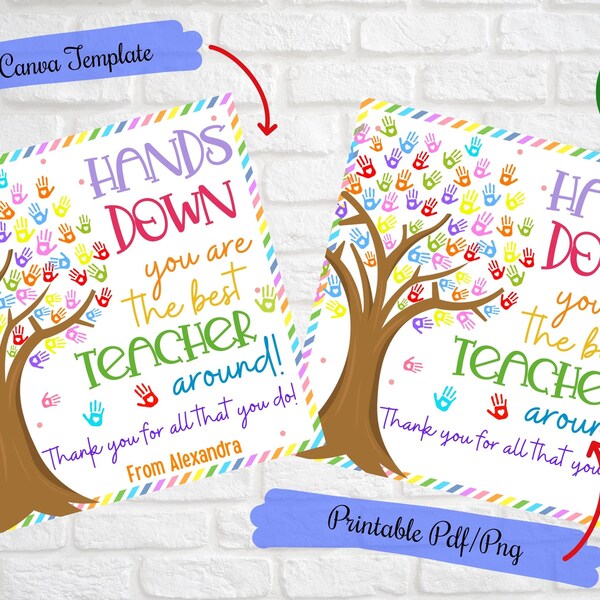 Canva Template
HANDS
DOWN
you are
the best
TEACHER
around!
Thank you for all that you do!
From Alexandra
HA
DO
you
the be
TEACHE
aroun
Thank you for all that you
Printable Pdf/Png